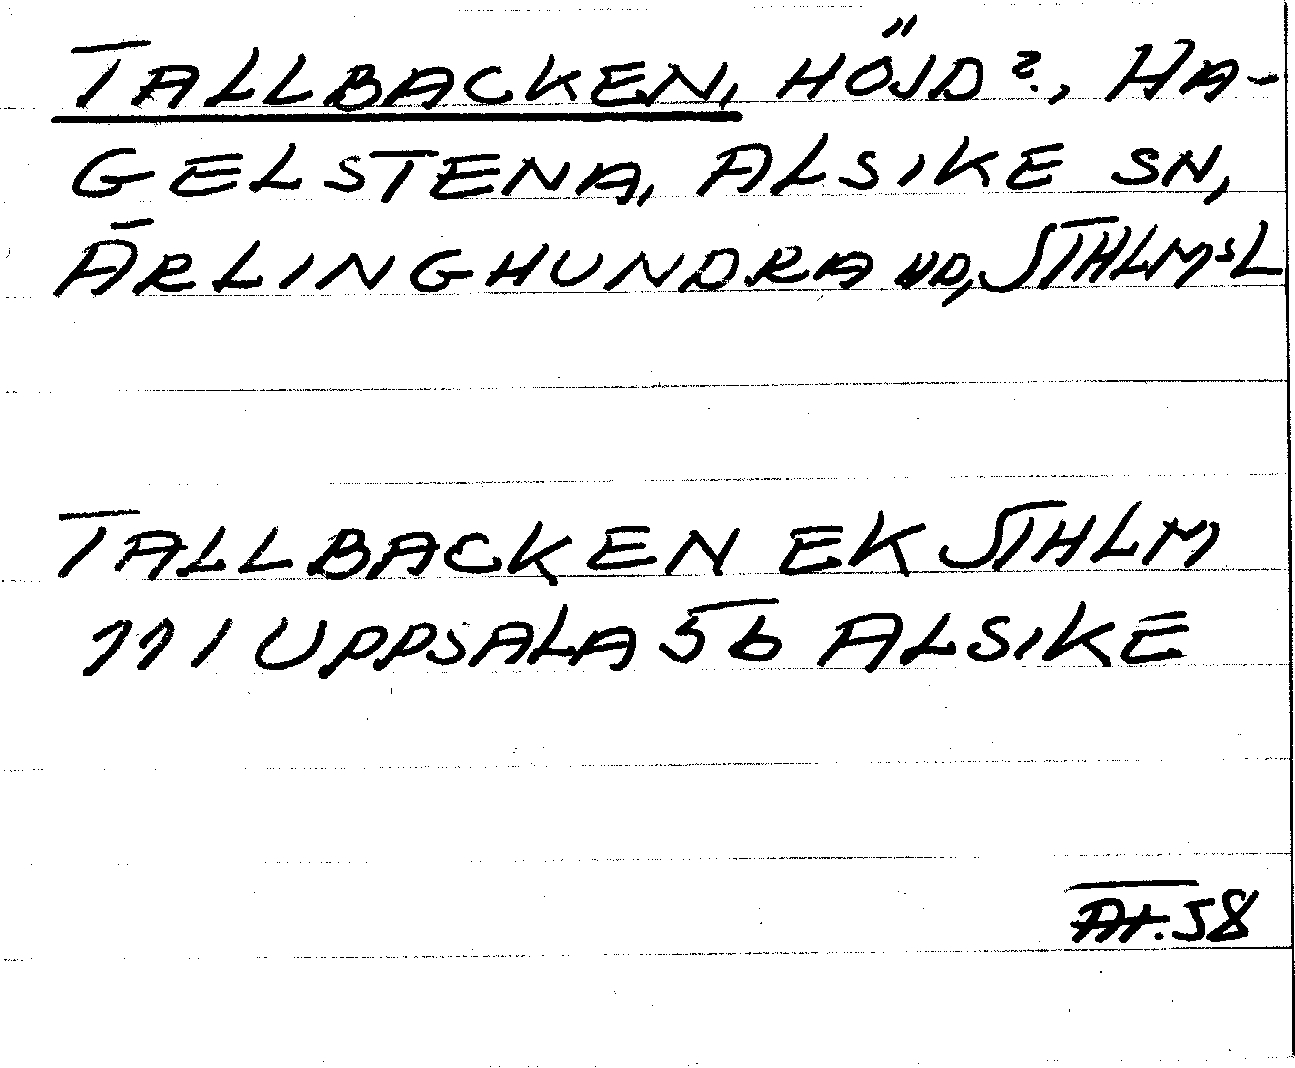 TALLBACKEN, HÖJD?, HA-
GELSTENA, ALSIKE SN,
ÄRLINGHUNDRA HD, STHLMSL
TALLBACKEN EK STHLM
11I UPPSALA 5b ALSIKE
At. 58